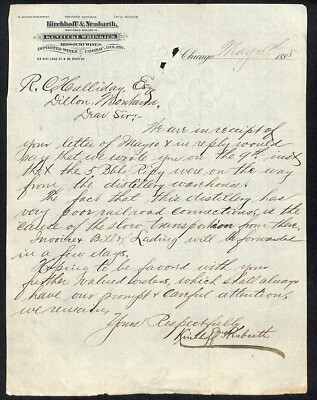 Kirchhoff & Neubarth,
KENTUCKY WHISKIES
MISSOURI WINES
IMPORTED WINES COGNAC, GIN, ETC.
Chicago, May 188
R. C. Halliday, Esq
Dillon, Montana
Dear Sir:
We are in receipt of
your letter of May & in reply would
say that we wrote you on the 9th inst
that the 5 Bbls Ripy were on the way
from the distillery warehouse.
The fact that this distillery has
very poor railroad connections, is the
cause of the slow transportation from there.
Invoice & Bill of Lading will be forwarded
in a few days.
Hoping to be favored with your
further valued orders, which shall always
have our prompt & careful attention,
we remain,
Yours Respectfully
Kirchhoff & Neubarth